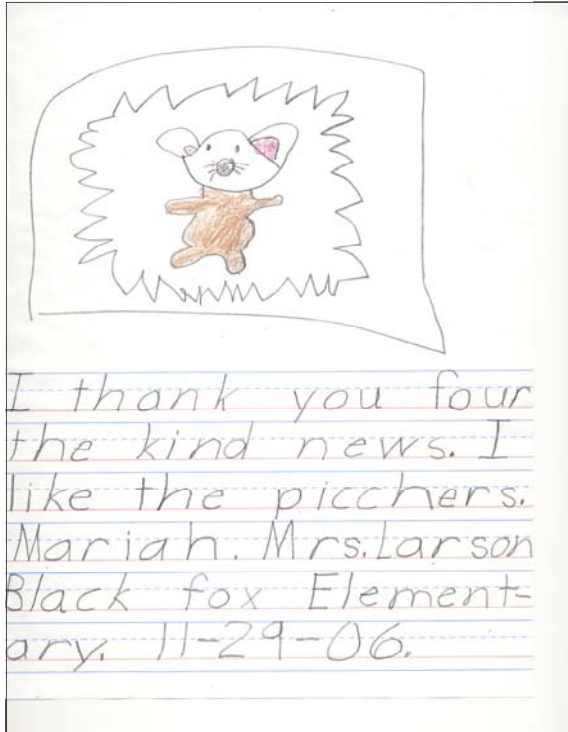 I thank you four
the kind news. I
like the picchers.
Mariah. Mrs. Larson
Black fox Element-
ary. 11-29-06.